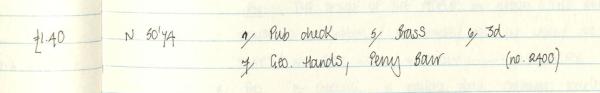 £1.40 N 50'YA 2/ Pub check 5/ Brass 6/ 3d
7/ Geo. Hands, Perry Barr (no. 2400)